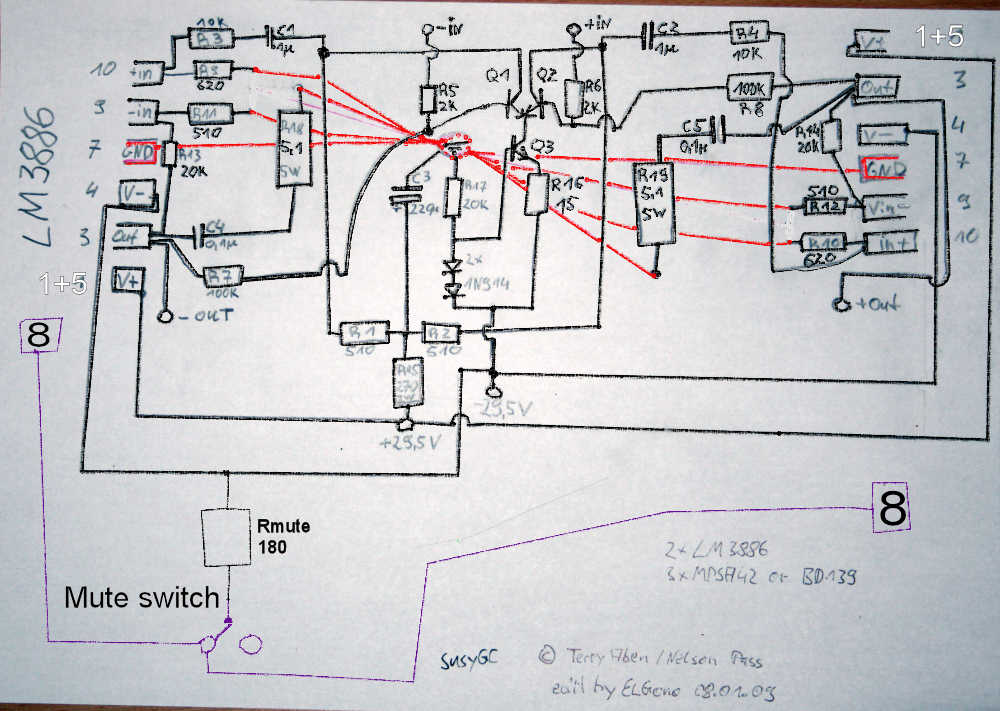 10K
R3
C1
1µ
-iN
+iN
C2
1µ
R4
10K
V+
1+5
10
+in
R9
620
Q1
Q2
R5
2K
R6
2K
100K
R8
Out
3
9
-in
R11
510
R18
5,1
5W
C5
0,1µ
R14
20K
V-
4
LM3886
7
GND
R13
20K
Q3
R19
5,1
5W
GND
7
4
V-
C3
220µ
R17
20K
R16
15
510
R12
Vin-
9
3
Out
C4
0,1µ
R10
620
in+
10
1+5
V+
R7
100K
2x
1N914
-OUT
+Out
8
R1
510
R2
510
R15
270
-29,5V
+29,5V
8
Rmute
180
2x LM3886
3x MPSA42 or BD139
Mute switch
SusyGC
© Terry / Nelson Pass
edit by ELGeno 08.01.09